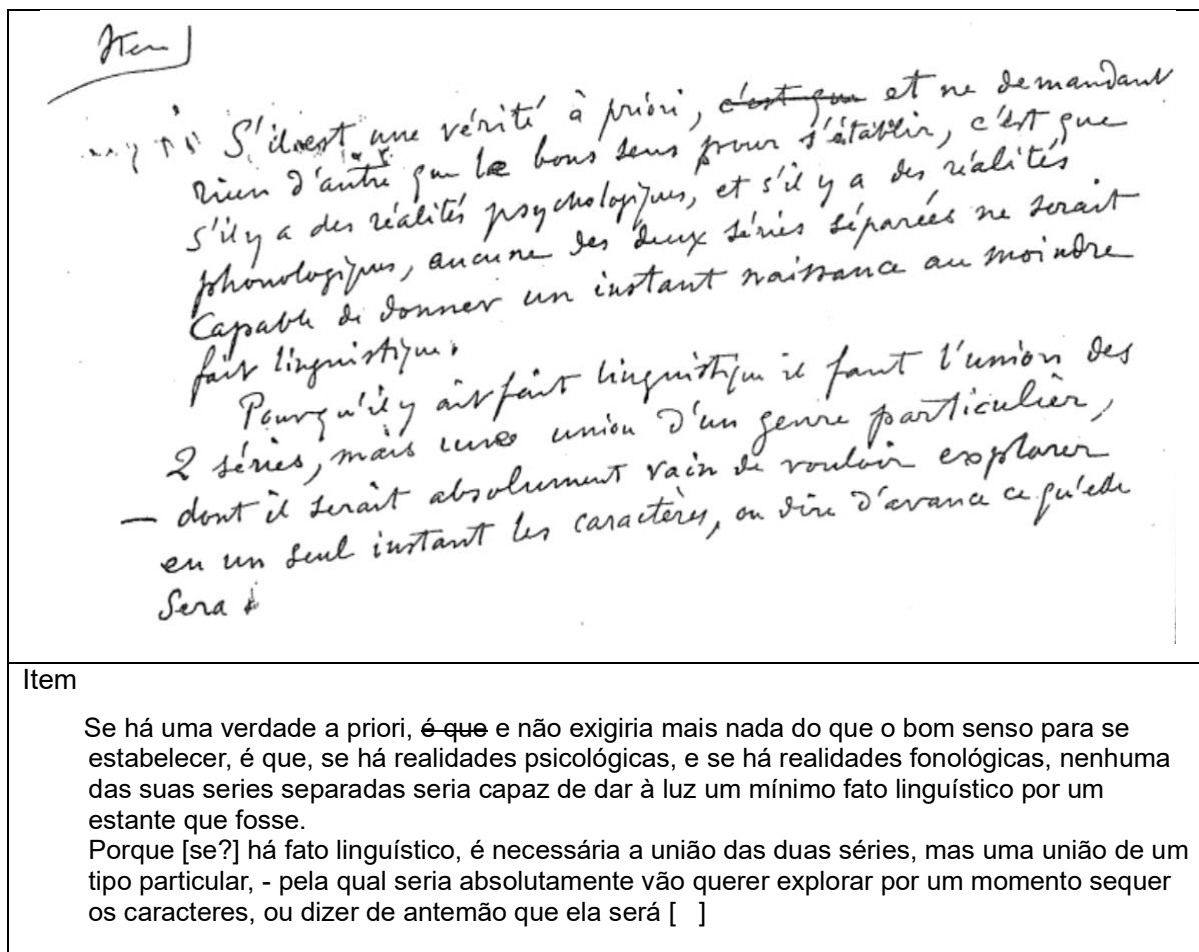 Item
S'il est une vérité à priori, c'est que et ne demandant
rien d'autre que le bons sens pour s'établir, c'est que
s'il y a des réalités psychologiques, et s'il y a des réalités
phonologiques, aucune des deux séries séparées ne serait
capable de donner un instant naissance au moindre
fait linguistique.
Pour qu'il y ait fait linguistique il faut l'union des
2 séries, mais une union d'un genre particulier,
— dont il serait absolument vain de vouloir explorer
en un seul instant les caractères, ou dire d'avance ce qu'elle
sera
Item
Se há uma verdade a priori, é que e não exigiria mais nada do que o bom senso para se
estabelecer, é que, se há realidades psicológicas, e se há realidades fonológicas, nenhuma
das suas series separadas seria capaz de dar à luz um mínimo fato linguístico por um
estante que fosse.
Porque [se?] há fato linguístico, é necessária a união das duas séries, mas uma união de um
tipo particular, - pela qual seria absolutamente vão querer explorar por um momento sequer
os caracteres, ou dizer de antemão que ela será [ ]